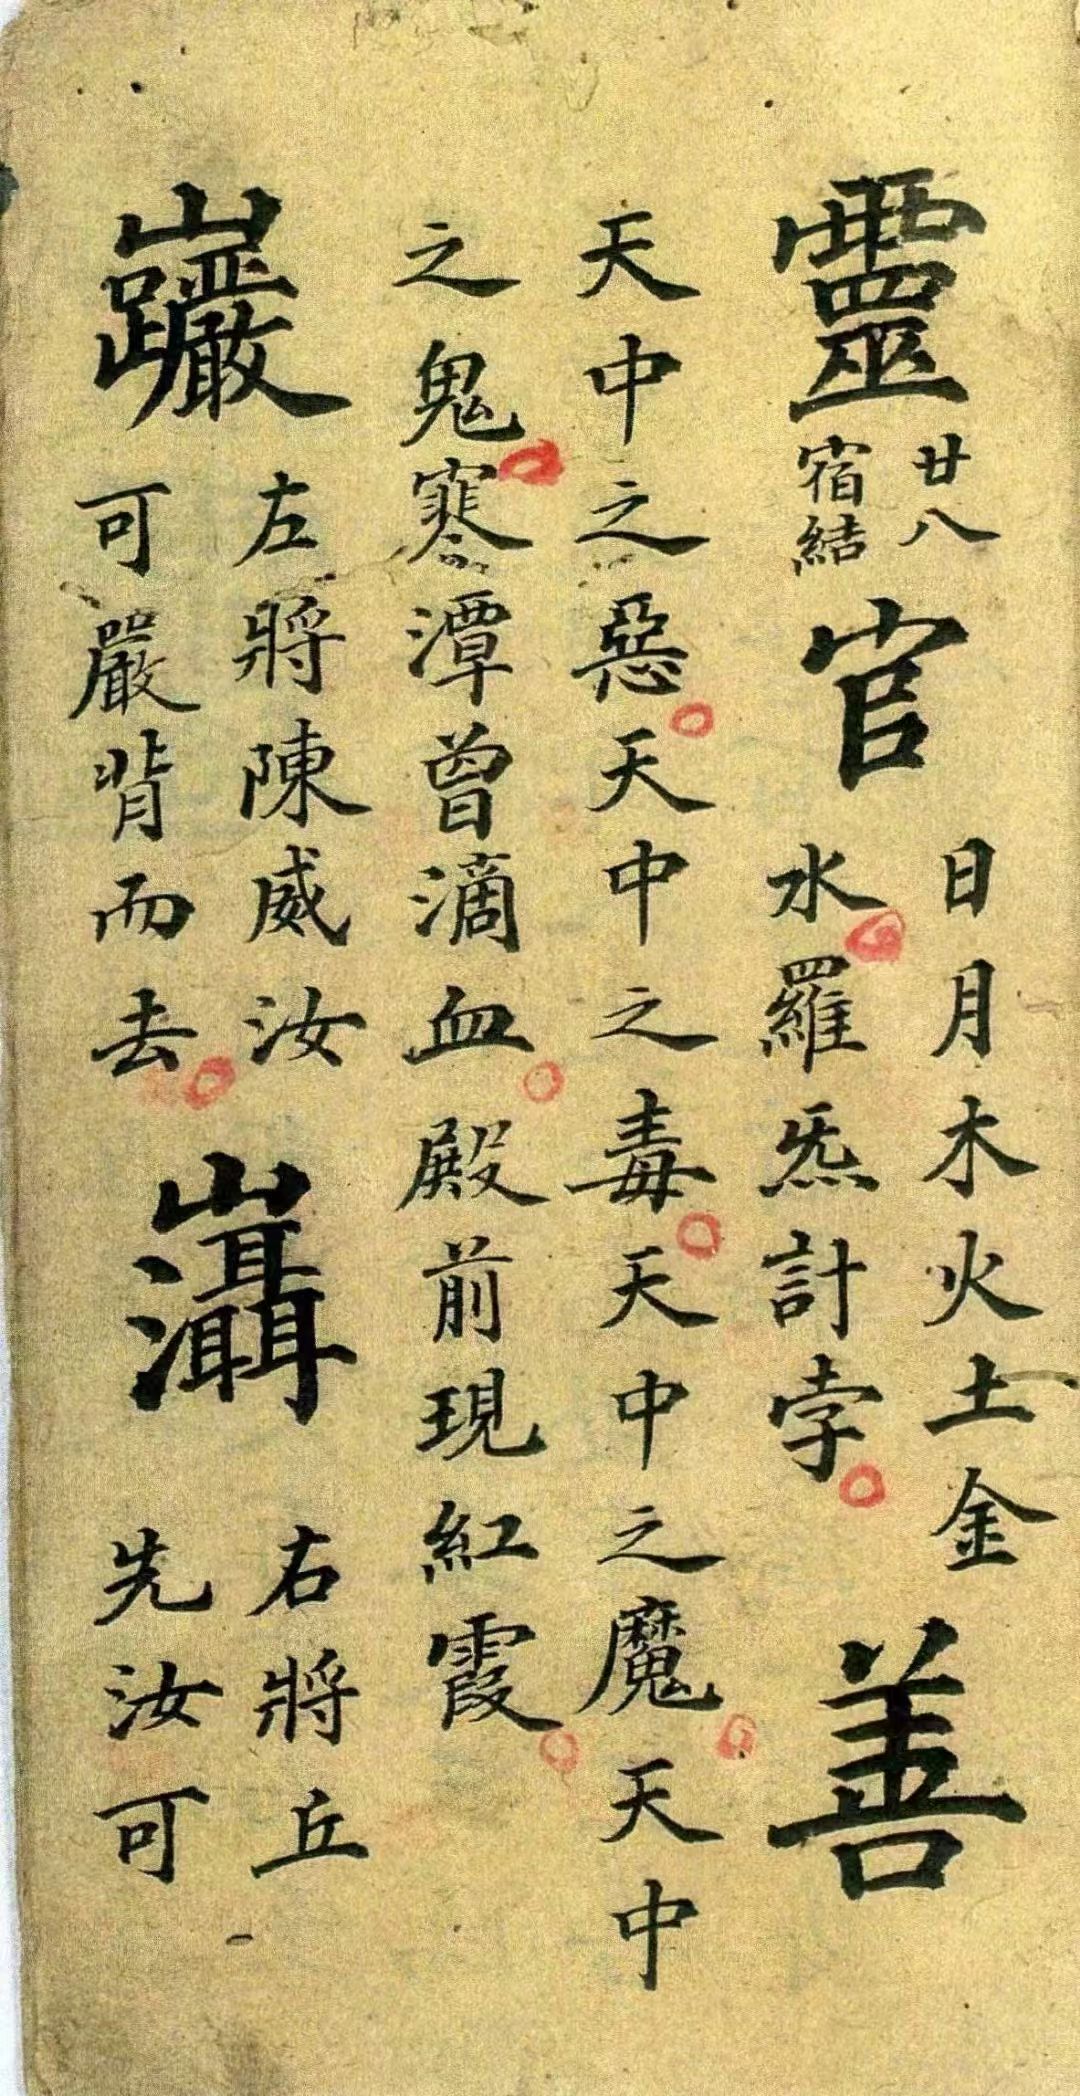 靈廿八宿結官日月木火土金水羅炁計孛善
天中之惡天中之毒天中之魔天中
之鬼寒潭曾滴血殿前現紅霞
左將陳威汝可嚴背而去右將丘先汝可